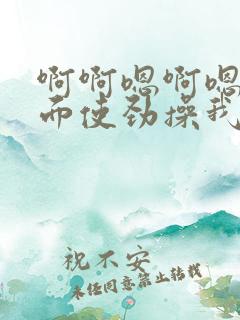 啊啊嗯啊嗯
而使劲操我
祝不安
未经同意禁止转载